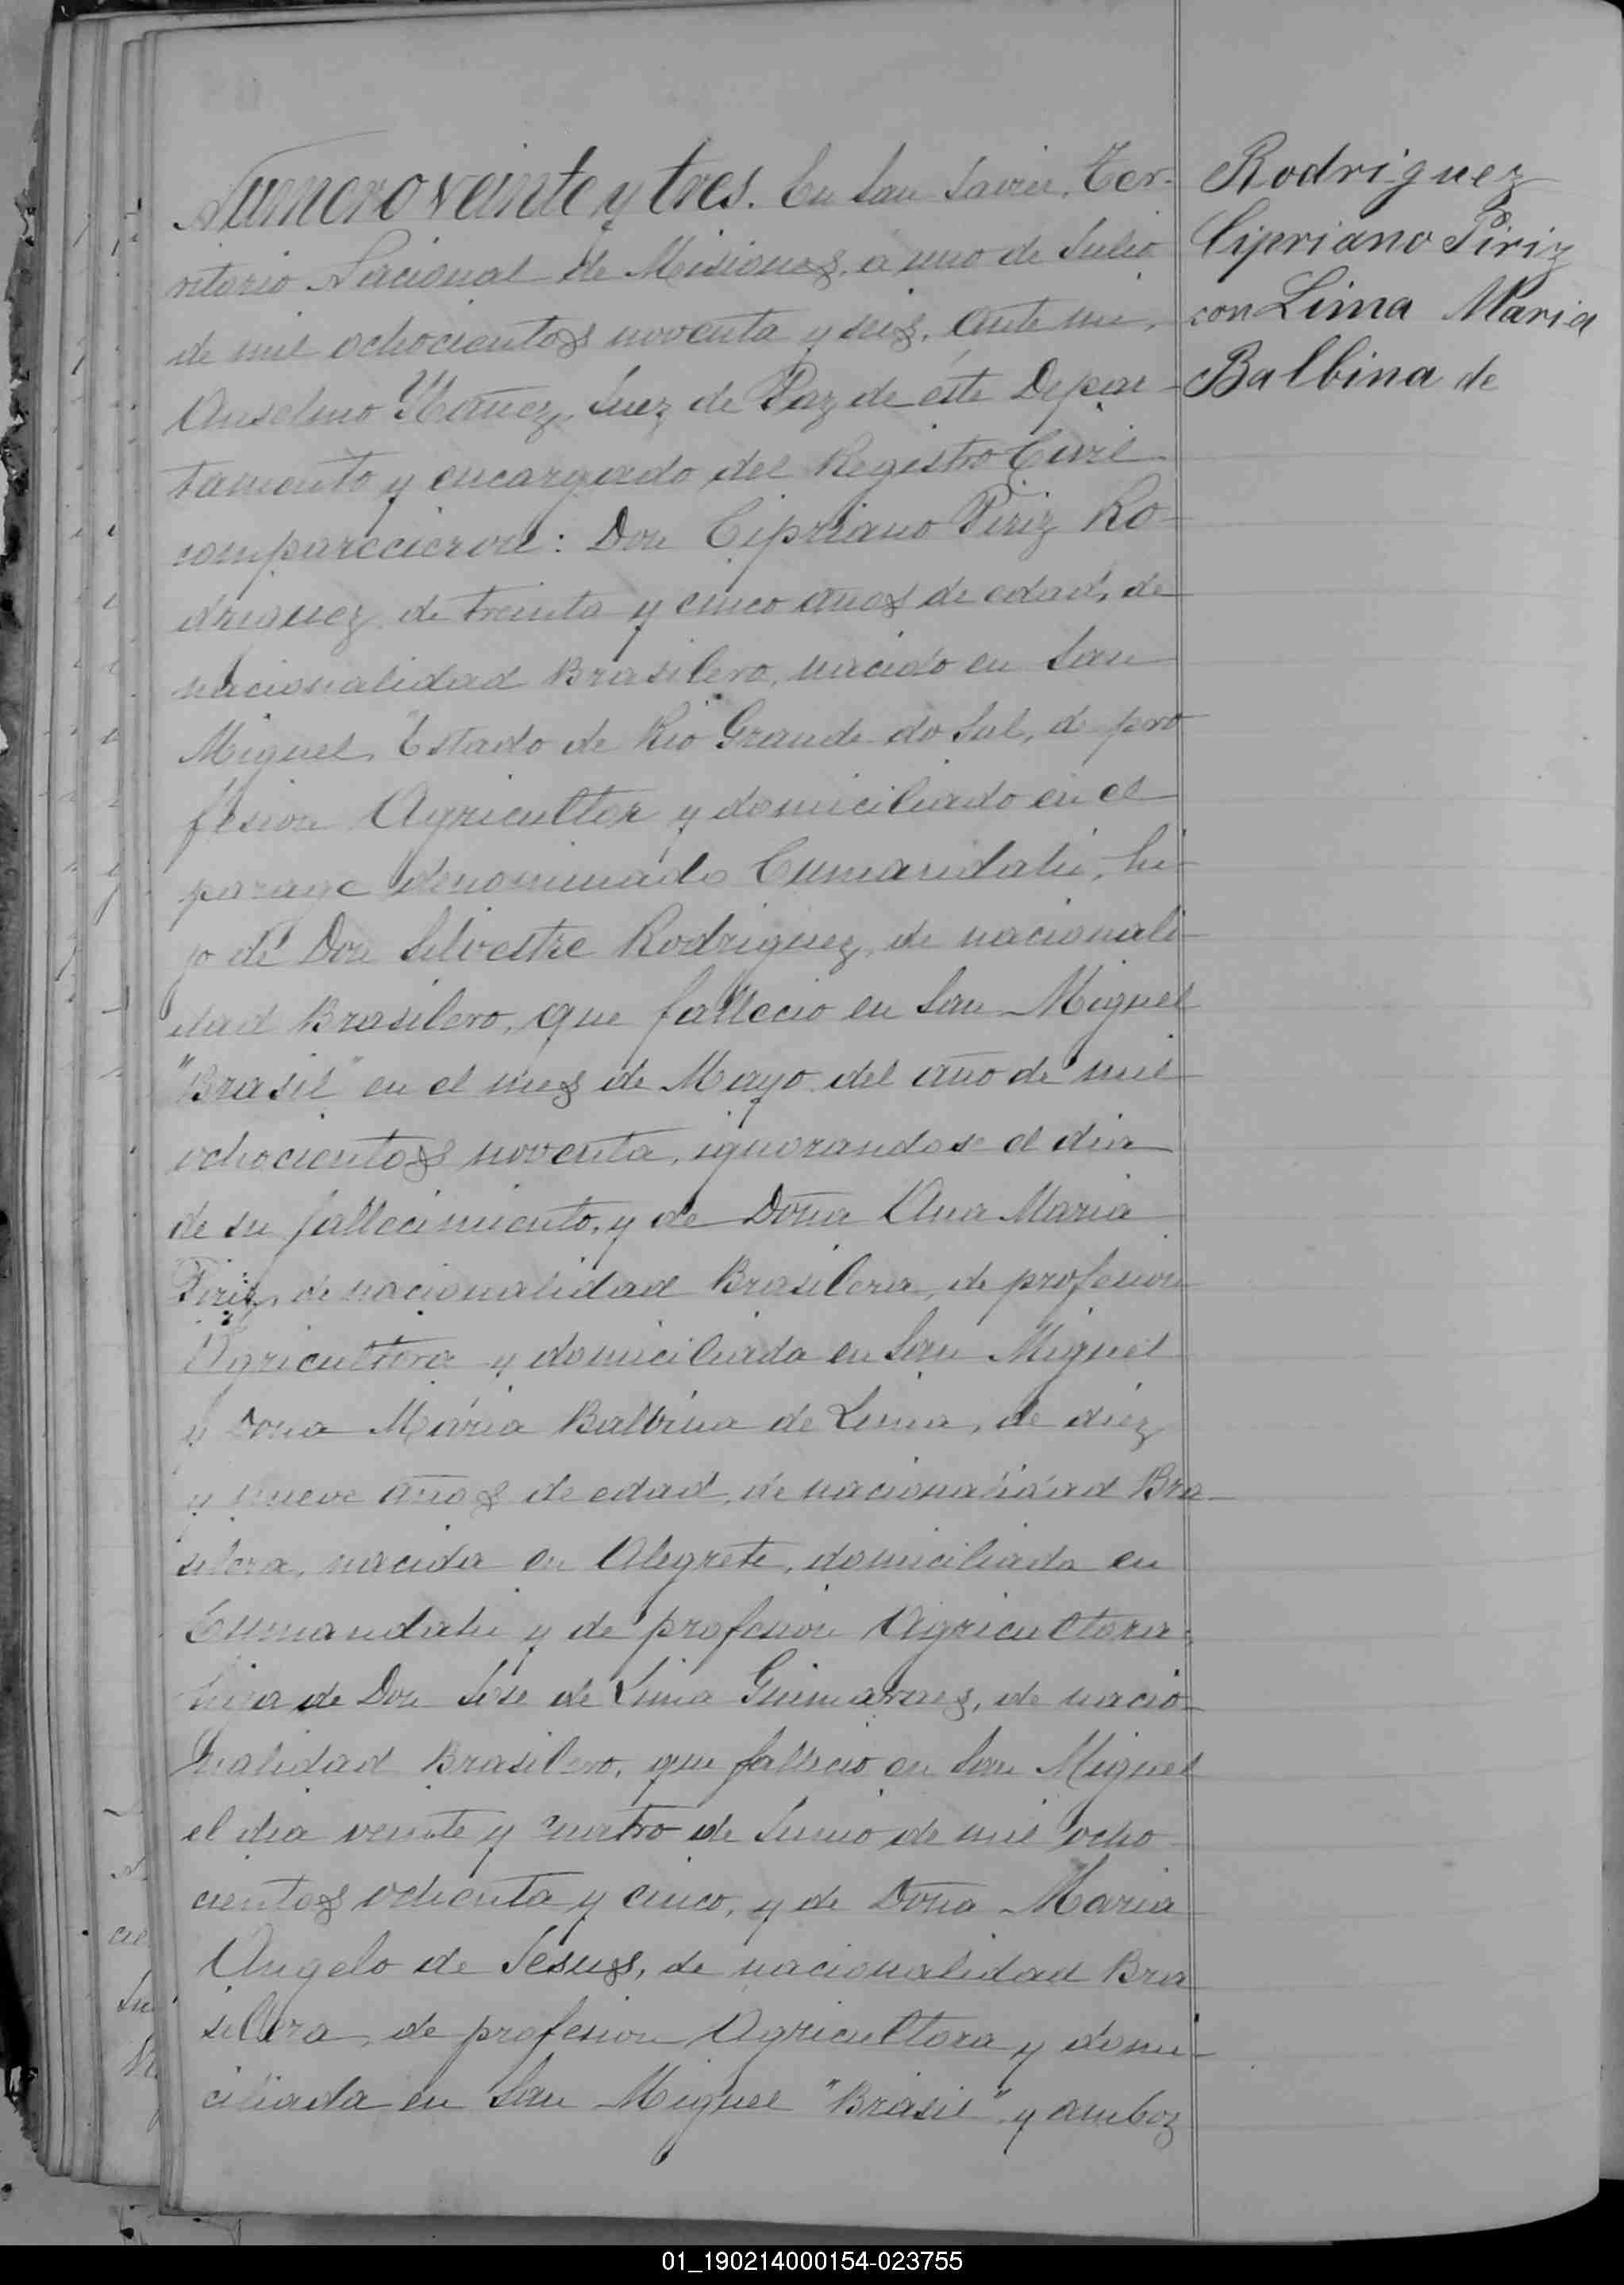 Numero veinte y tres. En San Javier, Ter-
ritorio Nacional de Misiones, á uno de Julio
de mil ochocientos noventa y seis, Ante mi,
Anselmo Ybañez, Juez de Paz de éste Depar-
tamento y encargado del Registro Civil
comparecieron: Don Cipriano Piriz Ro-
driguez, de treinta y cinco años de edad, de
nacionalidad Brasilero, nacido en San
Miguel, Estado de Rio Grande do Sul, de pro
fesion Agricultor y domiciliado en el
parage denominado Cumandahi, hi-
jo de Don Silvestre Rodriguez, de nacionali-
dad Brasilero, que fallecio en San Miguel
"Brasil" en el mes de Mayo del año de mil
ochocientos noventa, ignorandose el dia
de su fallecimiento, y de Doña Ana Maria
Piriz, de nacionalidad Brasilera, de profesion
Agricultora y domiciliada en San Miguel
y Doña Maria Balbina de Lima, de diez
y nueve años de edad, de nacionalidad Bra-
silera, nacida en Alegrete, domiciliada en
Cumandahi y de profesion Agricultora;
hija de Don José de Lima Guimaraes, de nacio-
nalidad Brasilero, que fallecio en San Miguel
el dia veinte y cuatro de Junio de mil ocho
cientos ochenta y cinco, y de Doña Maria
Angelo de Jesus, de nacionalidad Bra
silera, de profesion Agricultora y domi-
ciliada en San Miguel "Brasil" y ambos
Rodriguez
Cipriano Piriz
con Lima Maria
Balbina de
01_190214000154-023755